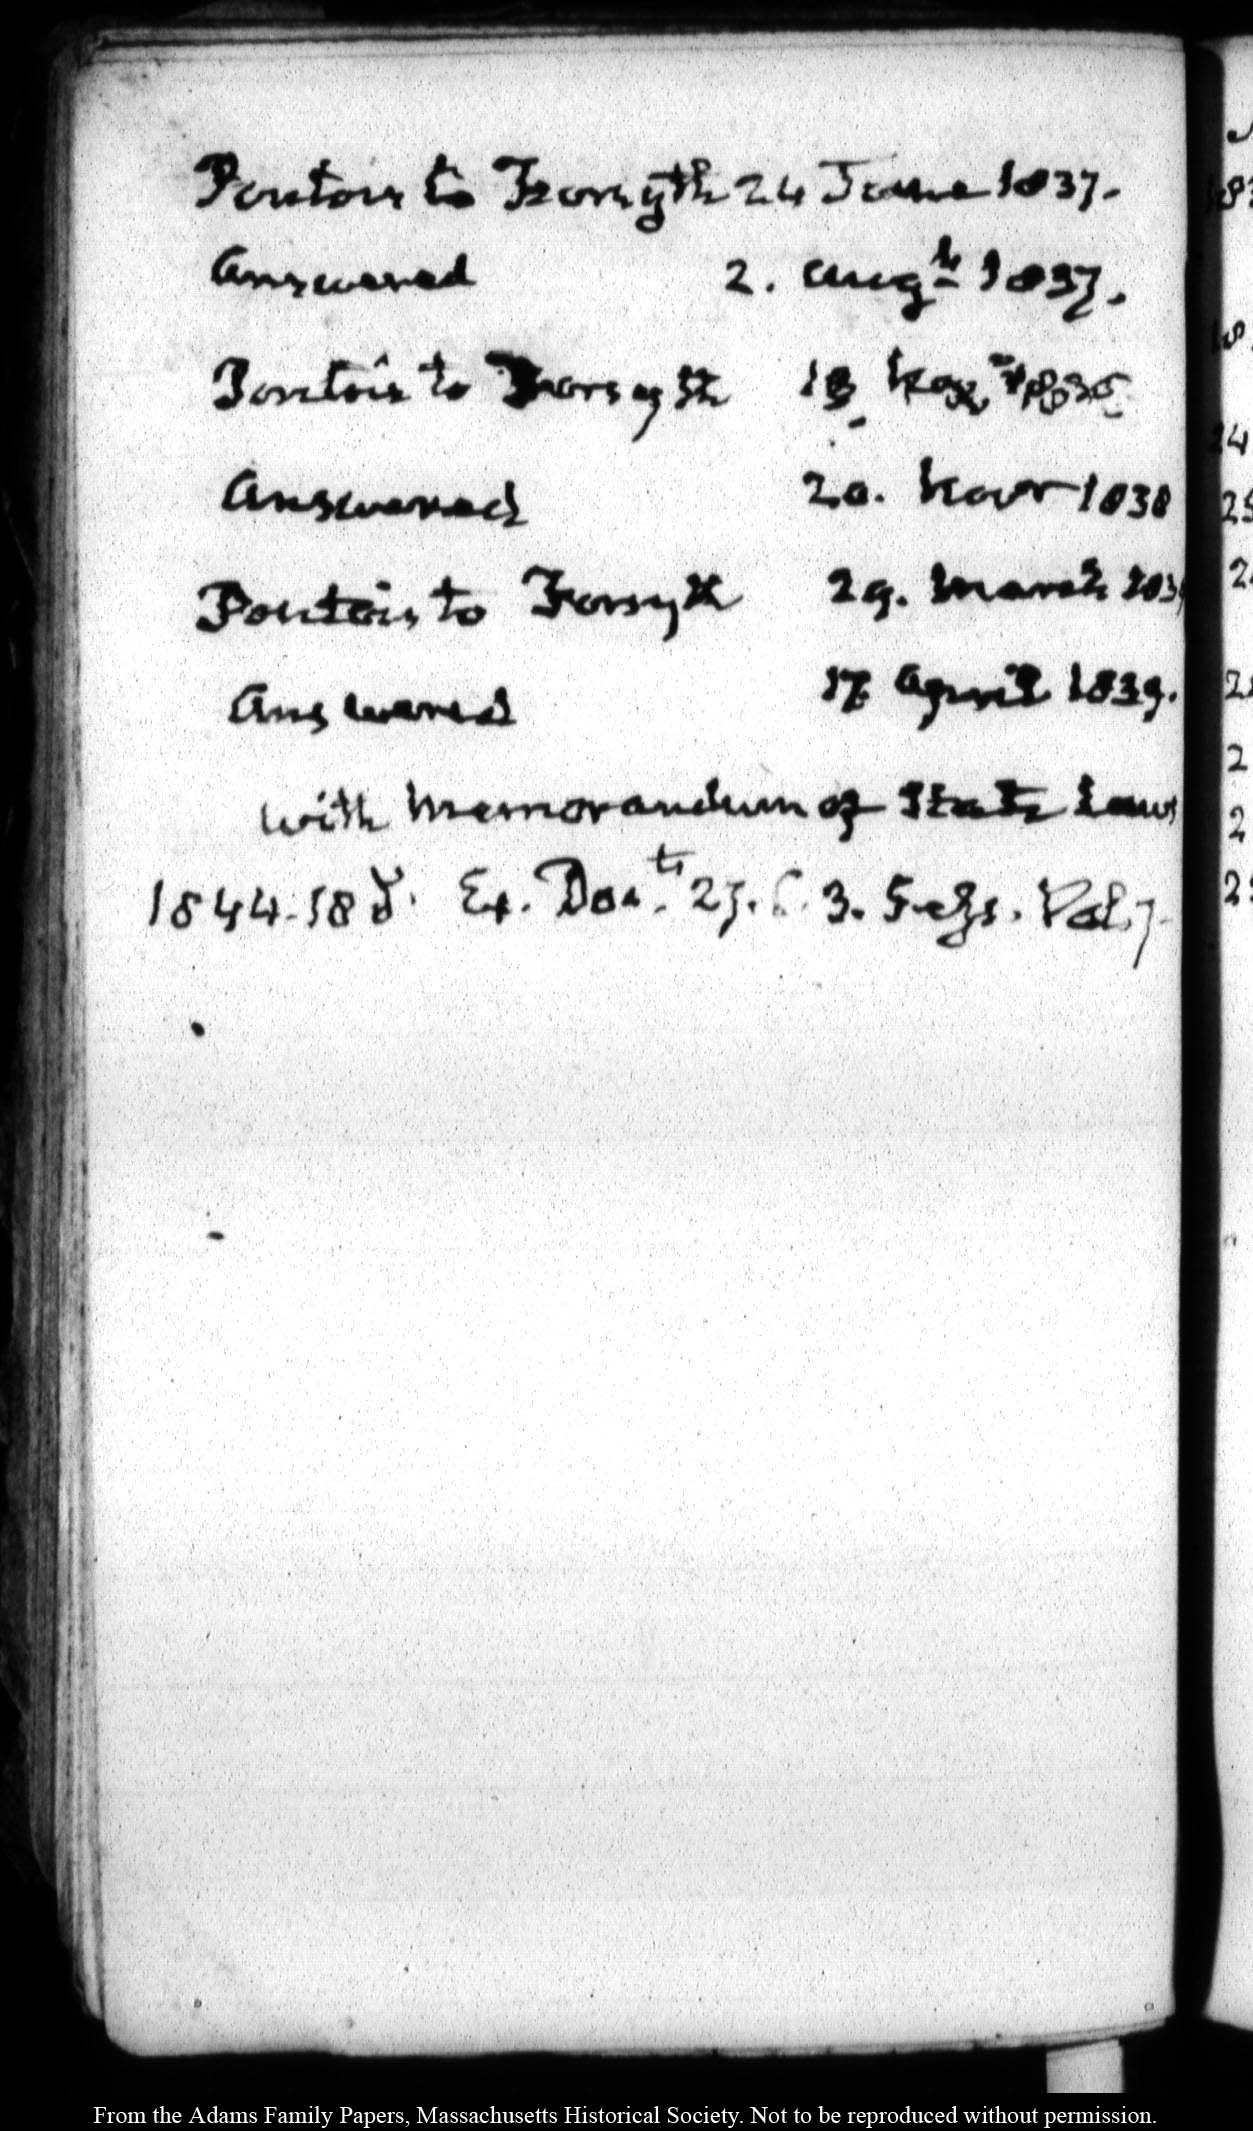 Pontois to Forsyth 24 June 1837.
Answered 2. Augt 1837.
Pontois to Forsyth 13
Answered 20. Novr 1838
Pontois to Forsyth 29. March 1839
Answered 17 April 1839.
with Memorandum of State Laws
1844. Ex. Doct 27. 3. Sess. Vol.
From the Adams Family Papers, Massachusetts Historical Society. Not to be reproduced without permission.